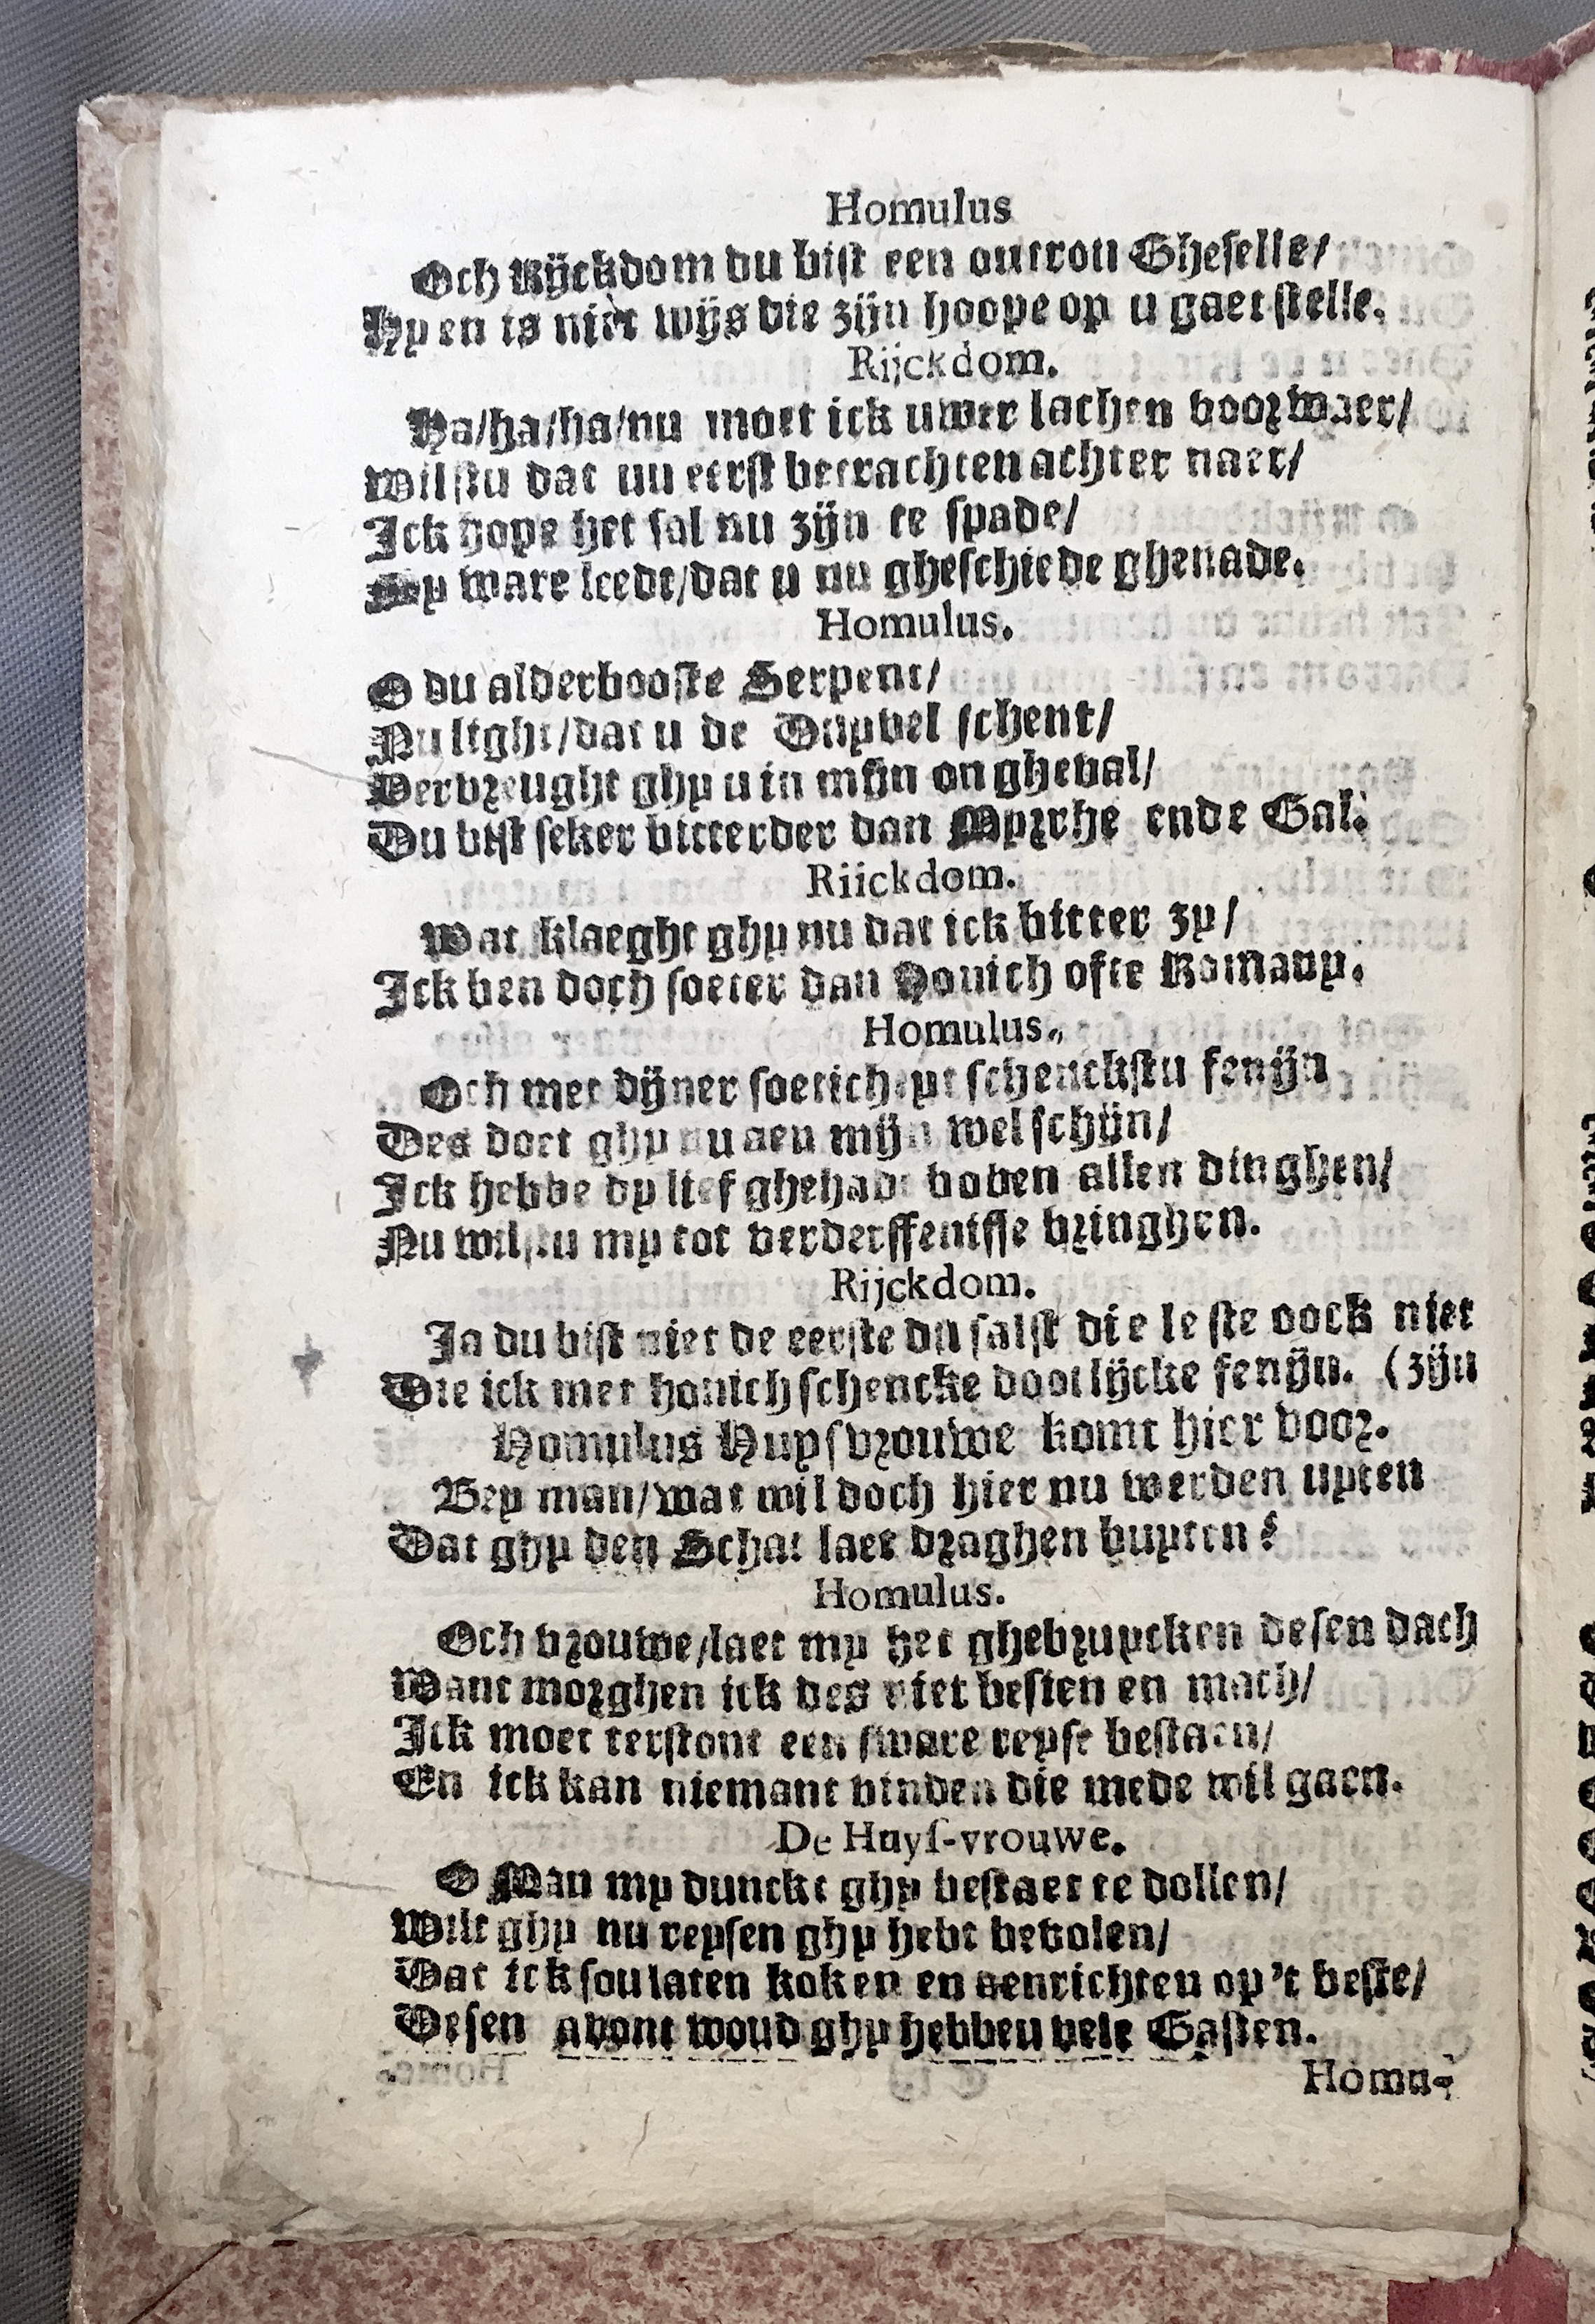 Homulus
Och Rijckdom du bist een ontrou Gheselle/
Hy en is niet wijs die zijn hoope op u gaet stelle.
Rijckdom.
Ha/ha/ha/nu moet ick uwer lachen voorwaer/
Wilstu dat nu eerst betrachten achter naer/
Ick hope het sal nu zijn te spade/
My ware leedt/dat u nu gheschiede ghenade.
Homulus.
O du alderbooste Serpent/
Nu light/dat u de Duyvel schent/
Vervreught ghy u in mijn ongheval/
Du bist seker bitterder dan Myrrhe ende Gal.
Riickdom.
Wat klaeght ghy nu dat ick bitter zy/
Ick ben doch soeter dan Honich ofte Romany.
Homulus.
Och met dijner soeticheyt schenckstu fenijn
Des doet ghy nu aen mijn wel schijn/
Ick hebbe dy lief ghehadt boven allen dinghen/
Nu wilstu my tot verderffenisse bringhen.
Rijckdom.
Ja du bist niet de eerste du salst die leste oock niet
Die ick met honich schencke dootlijcke fenijn. (zijn
Homulus Huysvrouwe komt hier voor.
Bey man/wat wil doch hier nu werden uyten
Dat ghy den Schat laet draghen buyten?
Homulus.
Och vrouwe/laet my het ghebruycken desen dach
Want morghen ick des niet besien en mach/
Ick moet terstont een sware reyse bestaen/
En ick kan niemant vinden die mede wil gaen.
De Huyſ-vrouwe.
O Man my dunckt ghy bestaet te dollen/
Wilt ghy nu reysen ghy hebt bevolen/
Dat ick sou laten koken en aenrichten op't beste/
Desen avont woud ghy hebben vele Gasten.
Homu-